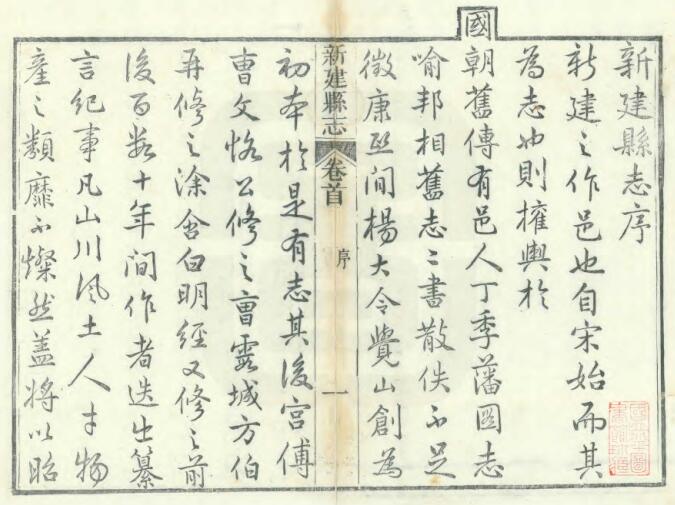 新建縣志序
新建之作邑也自宋始而其
為志也則權輿於
國朝舊傳有邑人丁季藩圖志
喻邦相舊志二書散佚不足
徵康熙間楊大令覺山創為
新建縣志 卷首 序 一
初本於是有志其後宮傅
曹文恪公修之曹城方伯
再修之涂舍白明經又修之前
後百數十年間作者迭出纂
言紀事凡山川風土人才物
產之類靡不燦然蓋將以昭